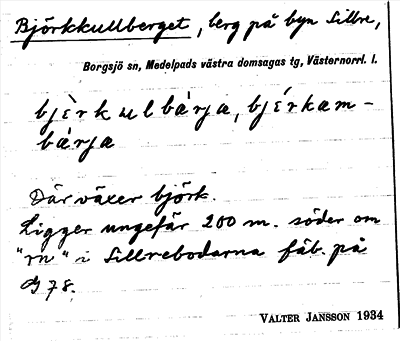 Björkkullberget, berg på byn Sillre,
Borgsjö sn, Medelpads västra domsagas tg, Västernorrl. l.
bjèrkulbàrja, bjérkam-
bàrja
Där växer björk.
Ligger ungefär 200 m. söder om
"rn" i Sillrebodarna fäb. på
G 78.
VALTER JANSSON 1934